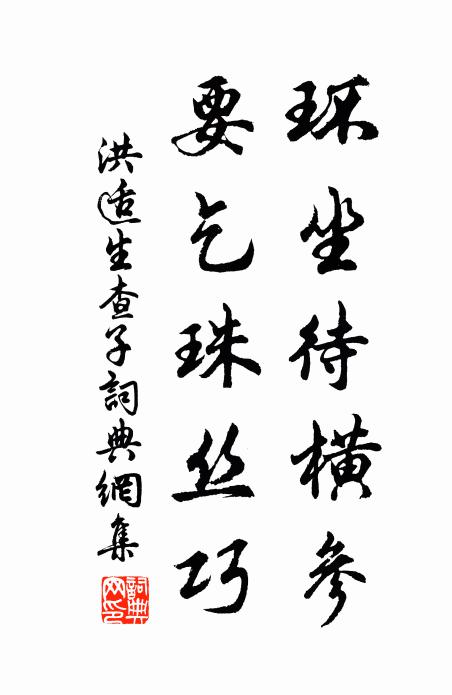 环坐待橫參
要乞珠丝巧
洪适生查子詞典網集
詞典
网印